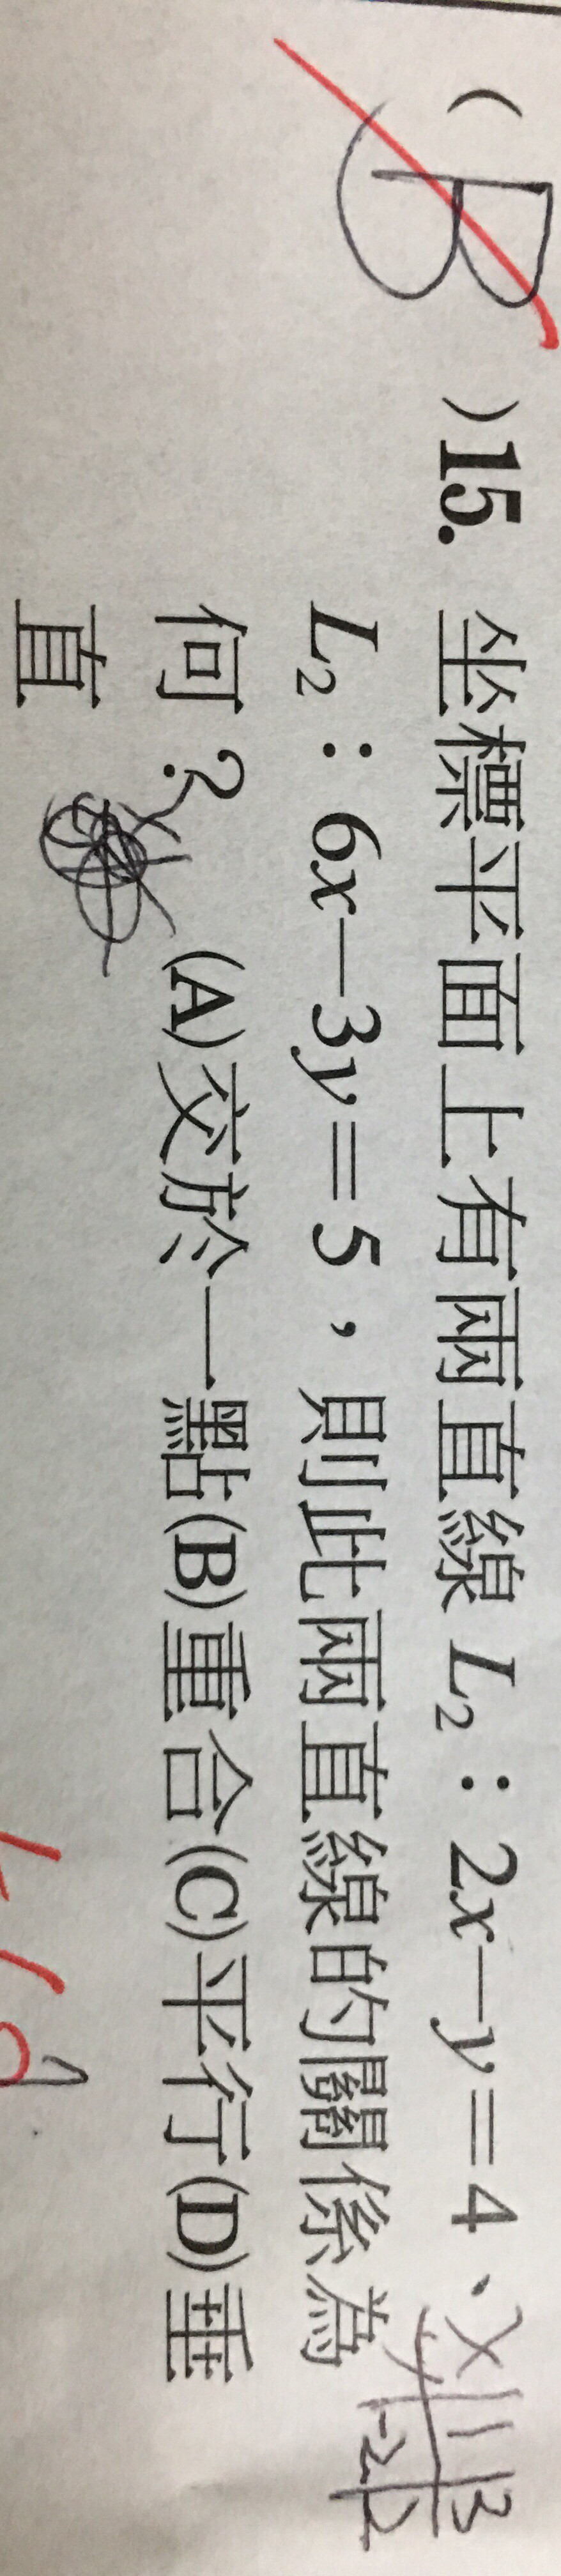 ( B )15. 坐標平面上有兩直線 L₂：2x－y＝4、
L₂：6x－3y＝5，則此兩直線的關係為
何？ (A)交於一點(B)重合(C)平行(D)垂
直
x 1 3
y -2 2